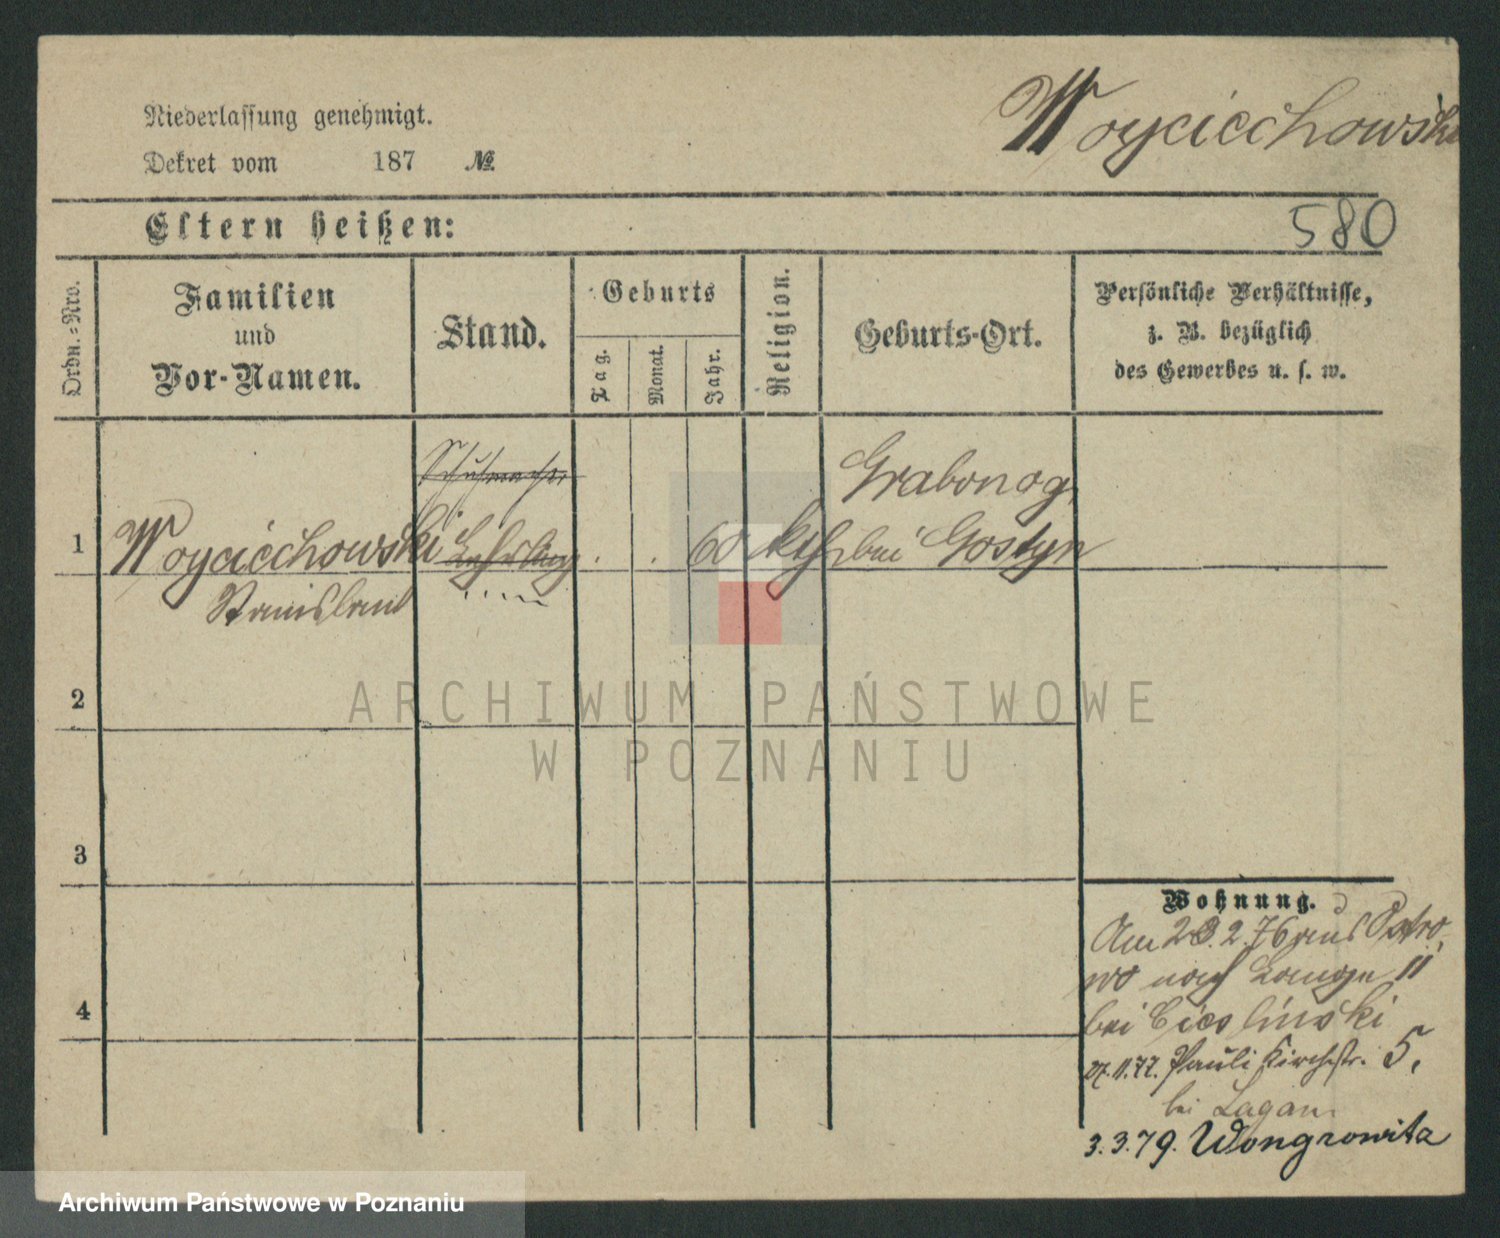 Niederlassung genehmigt.
Dekret vom 187 №
Woyciechowski
Eltern heißen:
580
Ordn.-Nro.
Familien
und
Vor-Namen.
Stand.
Geburts
Tag.
Monat.
Jahr.
Religion.
Geburts-Ort.
Persönliche Verhältnisse,
z. B. bezüglich
des Gewerbes u. s. w.
Schuhmacher
Grabonog
1 Woyciechowski Lehrling . . 60 kth bei Gostyn
Stanislaus
2
ARCHIWUM PAŃSTWOWE
W POZNANIU
3
Wohnung.
Am 28.2.76 aus Ostro
wo nach Lange 11
bei Cieslinski
4
27.11.77. Pauli Kirchstr. 5.
bei Lagan
3.3.79. Wongrowitz
Archiwum Państwowe w Poznaniu